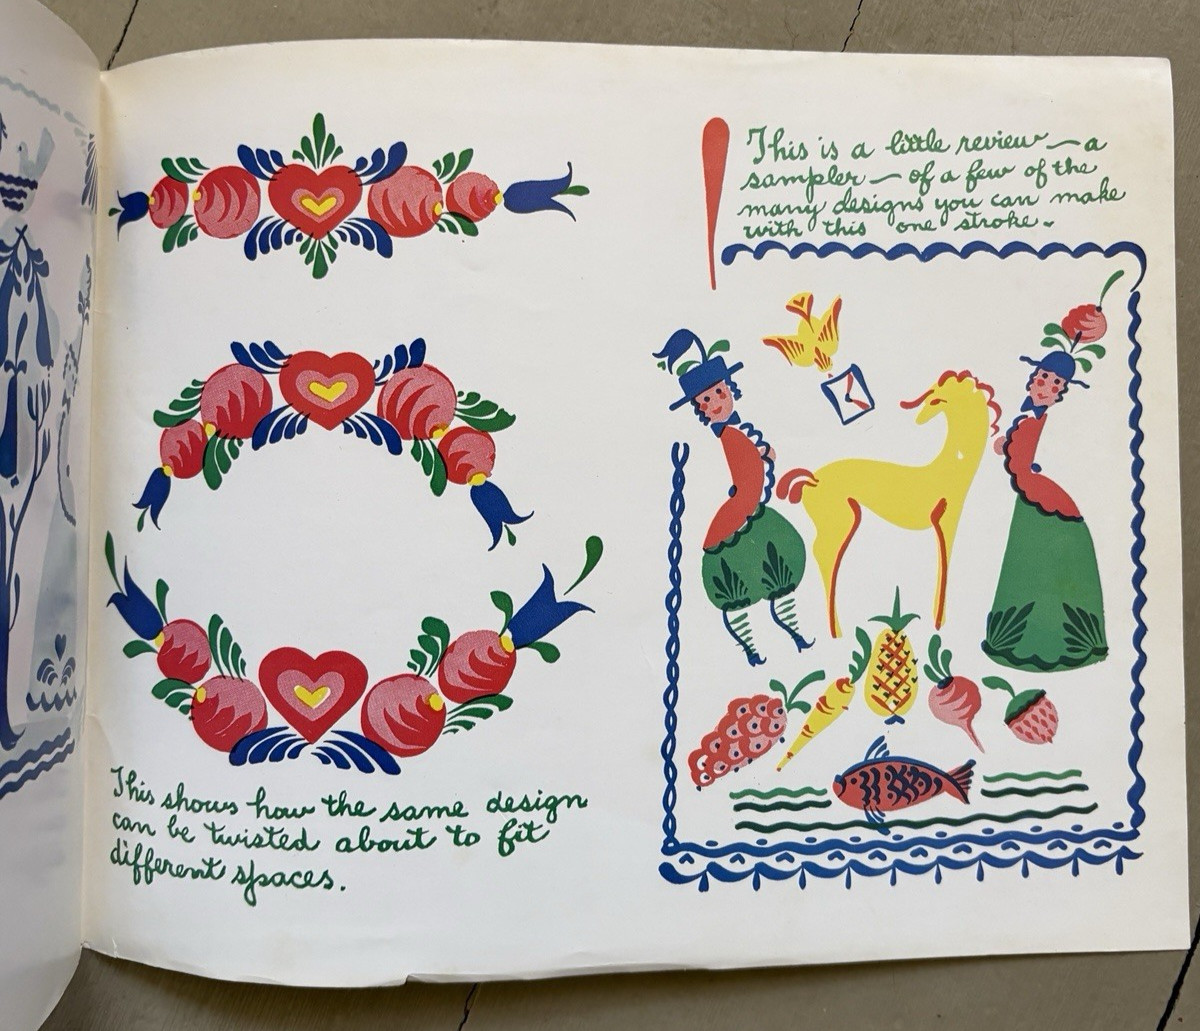 This is a little review — a
sampler — of a few of the
many designs you can make
with this one stroke.
This shows how the same design
can be twisted about to fit
different spaces.